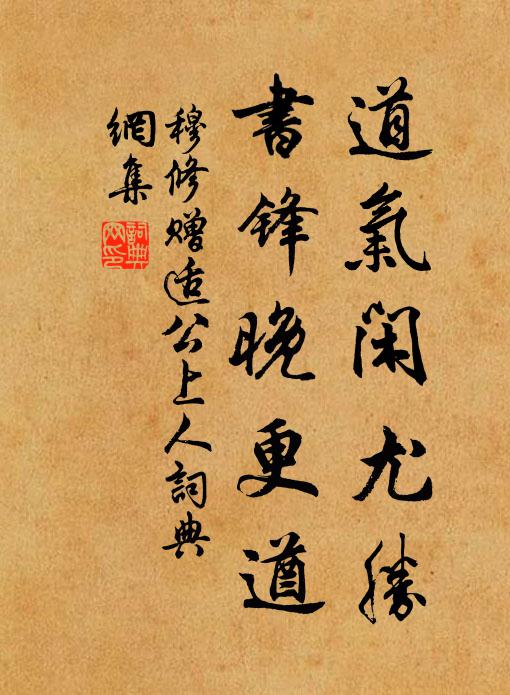 道氣閑尤勝
書鋒晚更遒
穆修贈适公上人詞典
網集
詞典网印